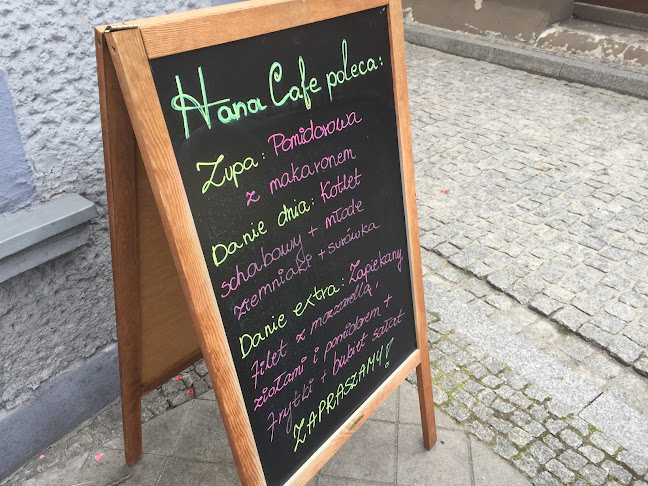 Hana Cafe poleca:
Zupa: Pomidorowa
z makaronem
Danie dnia: Kotlet
schabowy + młode
ziemniaki + surówka
Danie extra: Zapiekany
filet z mozzarellą,
ziołami i pomidorem +
frytki + bukiet sałat
ZAPRASZAMY!